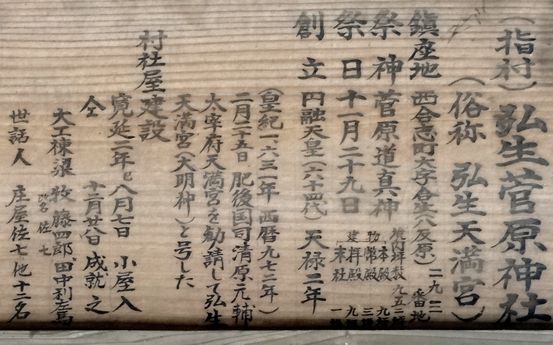 (指村) 弘生菅原神社
(俗祢 弘生天満宮)
鎮座地 西合志町大字合生八反原) 二九二番地
祭神 菅原道真神
本殿
幣殿
拝殿
末社
祭日 十一月二十九日
創立 円融天皇(六十四代) 天禄二年
(皇紀一六三一年西暦九七一年)
二月二十五日肥後国司清原元輔
大宰府天満宮を勧請して弘生
天満宮(大明神)と号した
村社屋建設
寛延二年 八月七日 小屋入
仝 十一月廿八日 成就之
大工棟梁 牧藤四郎 田中利
世話人 庄屋佐七他十二名